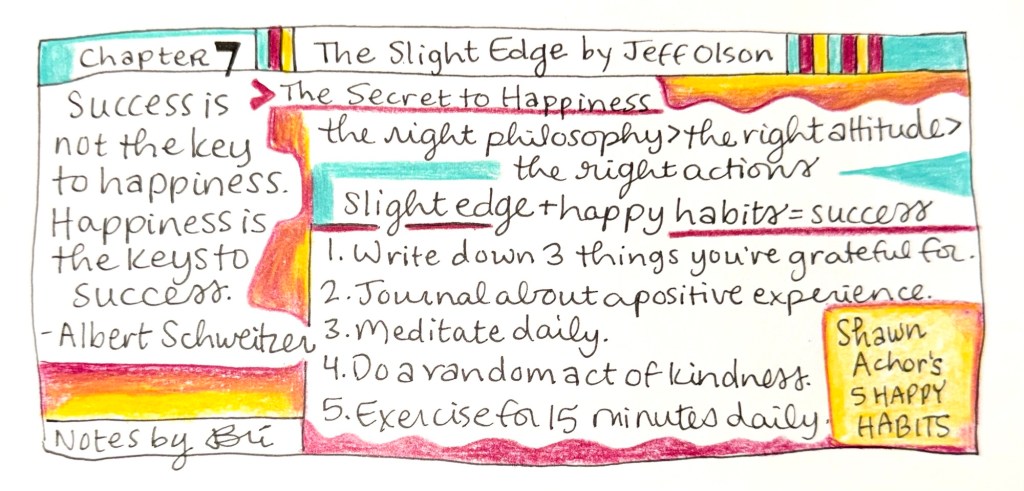 Chapter 7
The Slight Edge by Jeff Olson
Success is
not the key
to happiness.
Happiness is
the keys to
success.
-Albert Schweitzer
Notes by Bri
> The Secret to Happiness
the right philosophy > the right attitude >
the right actions
slight edge + happy habits = success
1. Write down 3 things you're grateful for.
2. Journal about a positive experience.
3. Meditate daily.
4. Do a random act of kindness.
5. Exercise for 15 minutes daily.
Shawn
Achor's
5 HAPPY
HABITS